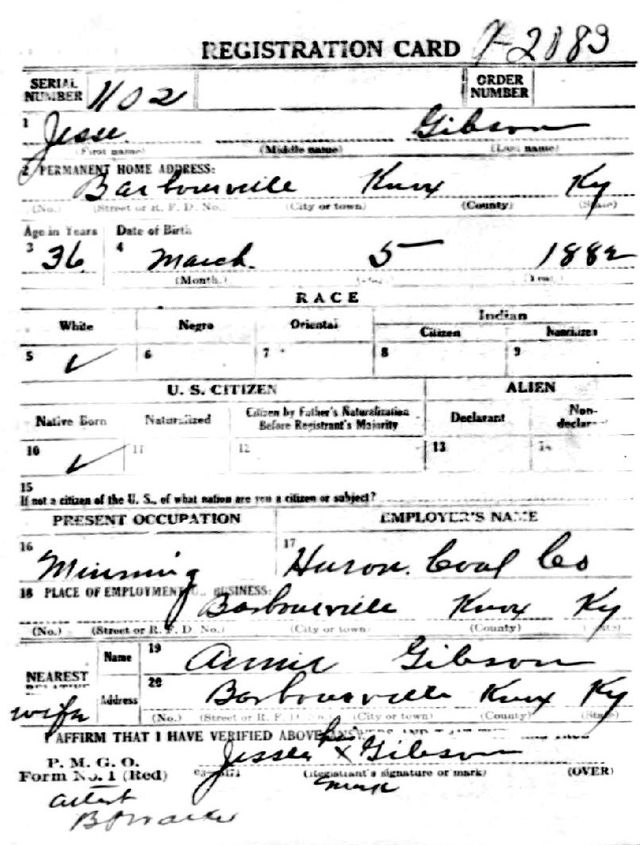 REGISTRATION CARD
SERIAL NUMBER 1102 ORDER NUMBER
1 Jesse Gibson
(First name) (Middle name) (Last name)
2 PERMANENT HOME ADDRESS:
Barbourville Knox Ky
(No.) (Street or R. F. D. No.) (City or town) (County) (State)
Age in Years Date of Birth
3 36 4 March 5 1882
(Month.) (Year.)
RACE
White Negro Oriental Indian
Citizen Noncitizen
5 ✓ 6 7 8 9
U. S. CITIZEN ALIEN
Native Born Naturalized Citizen by Father's Naturalization Before Registrant's Majority Declarant Non-declarant
10 ✓ 11 12 13 14
15
If not a citizen of the U. S., of what nation are you a citizen or subject?
PRESENT OCCUPATION EMPLOYER'S NAME
16 Minning 17 Huron Coal Co
18 PLACE OF EMPLOYMENT BUSINESS:
Barbourville Knox Ky
(No.) (Street or R. F. D. No.) (City or town) (County) (State)
NEAREST RELATIVE Name 19 Annie Gibson
wife Address 20 Barboursville Knox Ky
(No.) (Street or R. F. D. No.) (City or town) (County) (State)
I AFFIRM THAT I HAVE VERIFIED ABOVE
his
Jesse x Gibson
P. M. G. O.
Form No. 1 (Red) (Registrant's signature or mark) (OVER)
mark
attest